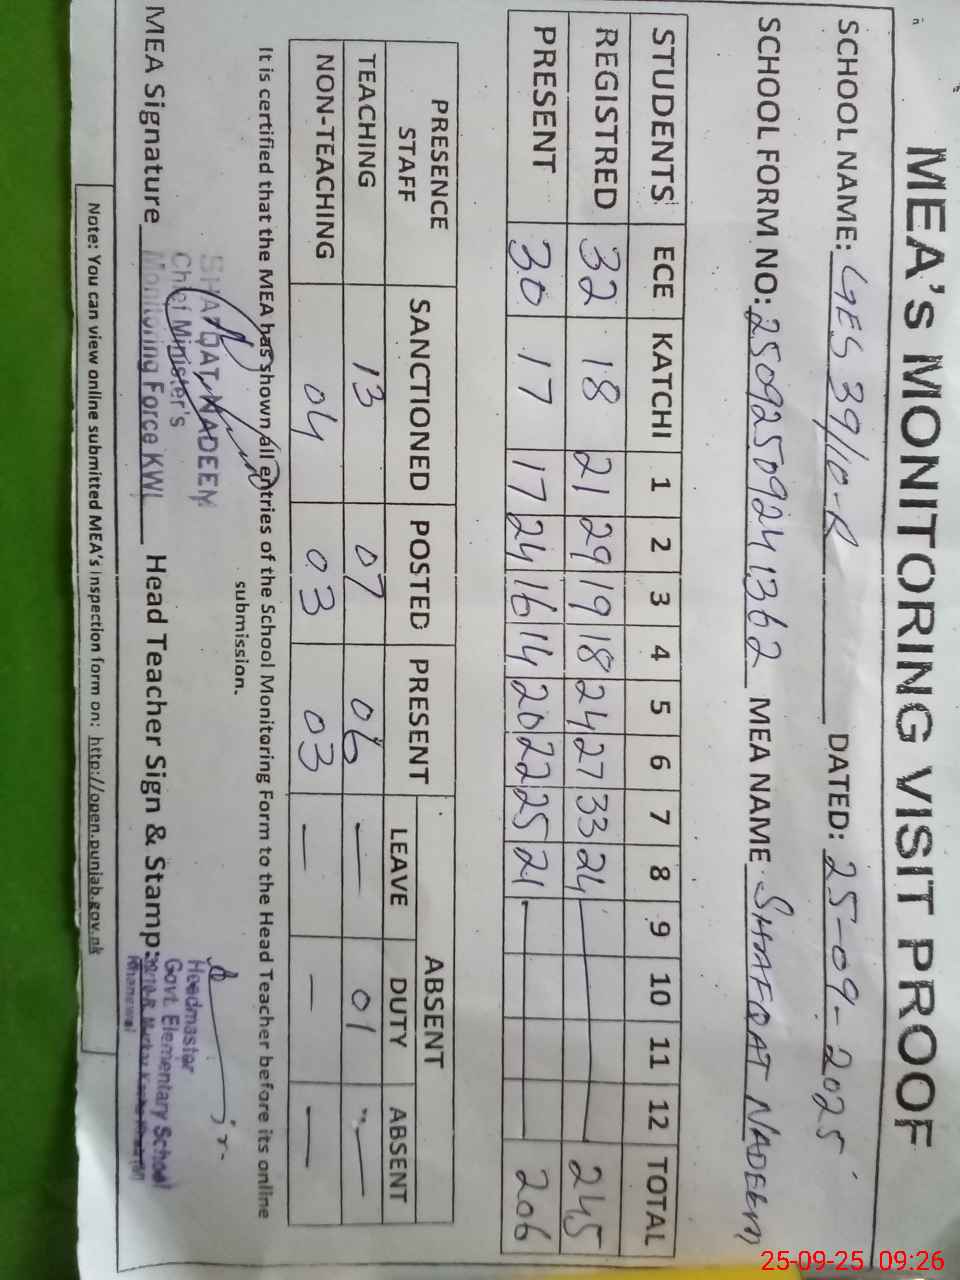 MEA'S MONITORING VISIT PROOF
SCHOOL NAME: GES 39/10-R DATED: 25-09-2025
SCHOOL FORM NO: 25092509241362 MEA NAME: SHAFQAT NADEEM
STUDENTS ECE KATCHI 1 2 3 4 5 6 7 8 9 10 11 12 TOTAL
REGISTRED 32 18 21 29 19 18 24 27 33 24 — 245
PRESENT 30 17 17 24 16 14 20 22 25 21 — 206
PRESENCE STAFF SANCTIONED POSTED PRESENT ABSENT
LEAVE DUTY ABSENT
TEACHING 13 07 06 — 01 —
NON-TEACHING 04 03 03 — — —
It is certified that the MEA has shown all entries of the School Monitoring Form to the Head Teacher before its online
submission.
SHAFQAT NADEEM
Chief Minister's
Monitoring Force KWL
MEA Signature Head Teacher Sign & Stamp:
Headmaster
Govt. Elementary School
39/10-R
Khanewal
Note: You can view online submitted MEA's inspection form on: http://open.punjab.gov.pk
25-09-25 09:26